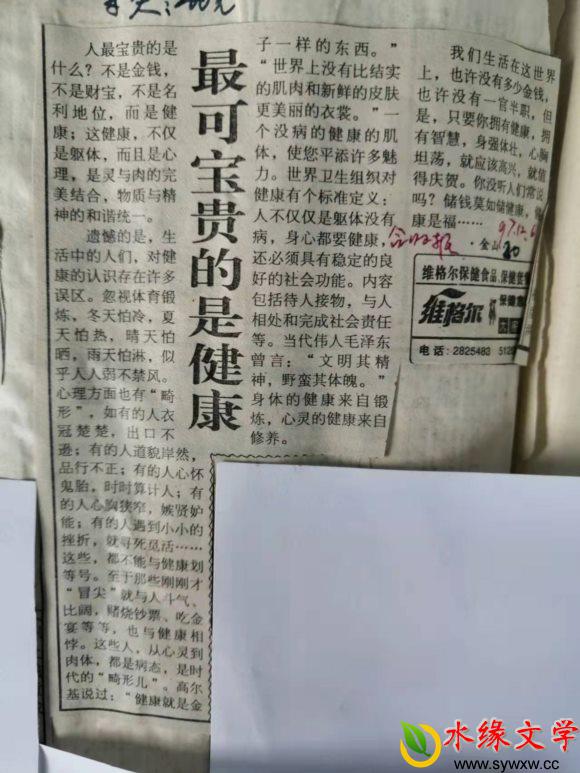 最可宝贵的是健康
人最宝贵的是
什么？不是金钱，
不是财宝，不是名
利地位，而是健
康；这健康，不仅
是躯体，而且是心
理，是灵与肉的完
美结合，物质与精
神的和谐统一。
遗憾的是，生
活中的人们，对健
康的认识存在许多
误区。忽视体育锻
炼，冬天怕冷，夏
天怕热，晴天怕
晒，雨天怕淋，似
乎人人弱不禁风。
心理方面也有“畸
形”，如有的人衣
冠楚楚，出口不
逊；有的人道貌岸然，
品行不正；有的人心怀
鬼胎，时时算计人；有
的人心胸狭窄，嫉贤妒
能；有的人遇到小小的
挫折，就寻死觅活……
这些，都不能与健康划
等号。至于那些刚刚才
“冒尖”就与人斗气、
比阔，赌烧钞票、吃金
宴等等，也与健康相
悖。这些人，从心灵到
肉体，都是病态，是时
代的“畸形儿”。高尔
基说过：“健康就是金
子一样的东西。”
“世界上没有比结实
的肌肉和新鲜的皮肤
更美丽的衣裳。”一
个没病的健康的肌
体，使您平添许多魅
力。世界卫生组织对
健康有个标准定义：
人不仅仅是躯体没有
病，身心都要健康，
还必须具有稳定的良
好的社会功能。内容
包括待人接物，与人
相处和完成社会责任
等。当代伟人毛泽东
曾言：“文明其精
神，野蛮其体魄。”
身体的健康来自锻
炼，心灵的健康来自
修养。
我们生活在这世界
上，也许没有多少金钱，
也许没有一官半职，但
是，只要你拥有健康，拥
有智慧，身强体壮，心胸
坦荡，就应该高兴，就值
得庆贺。你没听人们常说
吗？储钱莫如储健康，健
康是福……
·金山
97.12.6
维格尔保健食品、保健
维格尔
保健
电话：2825483 512
水缘文学
www.sywxw.cc